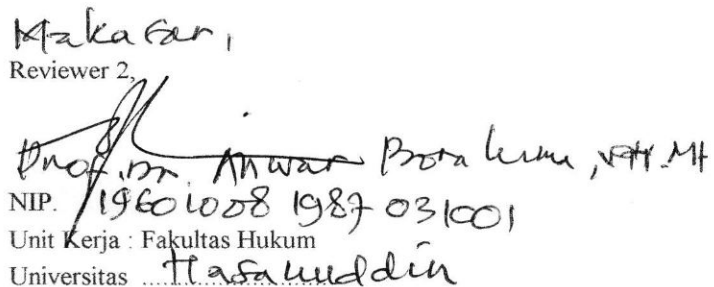 Makasar,
Reviewer 2,
Prof. Dr. Anwar Borahima, SH. MH
NIP. 19601008 1987 031001
Unit Kerja : Fakultas Hukum
Universitas ..Hasanuddin